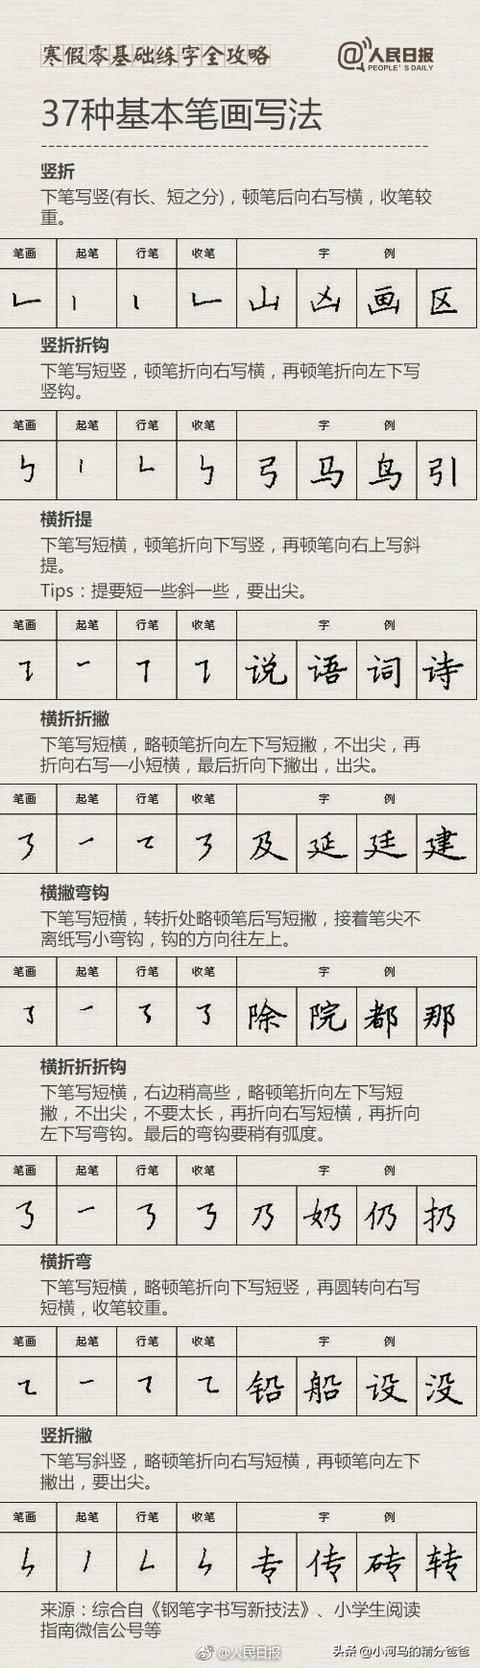 寒假零基础练字全攻略
@人民日报
PEOPLE'S DAILY
37种基本笔画写法
竖折
下笔写竖(有长、短之分)，顿笔后向右写横，收笔较
重。
笔画 起笔 行笔 收笔 字 例
山 凶 画 区
竖折折钩
下笔写短竖，顿笔折向右写横，再顿笔折向左下写
竖钩。
笔画 起笔 行笔 收笔 字 例
弓 马 鸟 引
横折提
下笔写短横，顿笔折向下写竖，再顿笔向右上写斜
提。
Tips：提要短一些斜一些，要出尖。
笔画 起笔 行笔 收笔 字 例
说 语 词 诗
横折折撇
下笔写短横，略顿笔折向左下写短撇，不出尖，再
折向右写一小短横，最后折向下撇出，出尖。
笔画 起笔 行笔 收笔 字 例
及 延 廷 建
横撇弯钩
下笔写短横，转折处略顿笔后写短撇，接着笔尖不
离纸写小弯钩，钩的方向往左上。
笔画 起笔 行笔 收笔 字 例
除 院 都 那
横折折折钩
下笔写短横，右边稍高些，略顿笔折向左下写短
撇，不出尖，不要太长，再折向右写短横，再折向
左下写弯钩。最后的弯钩要稍有弧度。
笔画 起笔 行笔 收笔 字 例
乃 奶 仍 扔
横折弯
下笔写短横，略顿笔折向下写短竖，再圆转向右写
短横，收笔较重。
笔画 起笔 行笔 收笔 字 例
铅 船 设 没
竖折撇
下笔写斜竖，略顿笔折向右写短横，再顿笔向左下
撇出，要出尖。
笔画 起笔 行笔 收笔 字 例
专 传 砖 转
来源：综合自《钢笔字书写新技法》、小学生阅读
指南微信公号等
@人民日报
头条 @小河马的精分爸爸